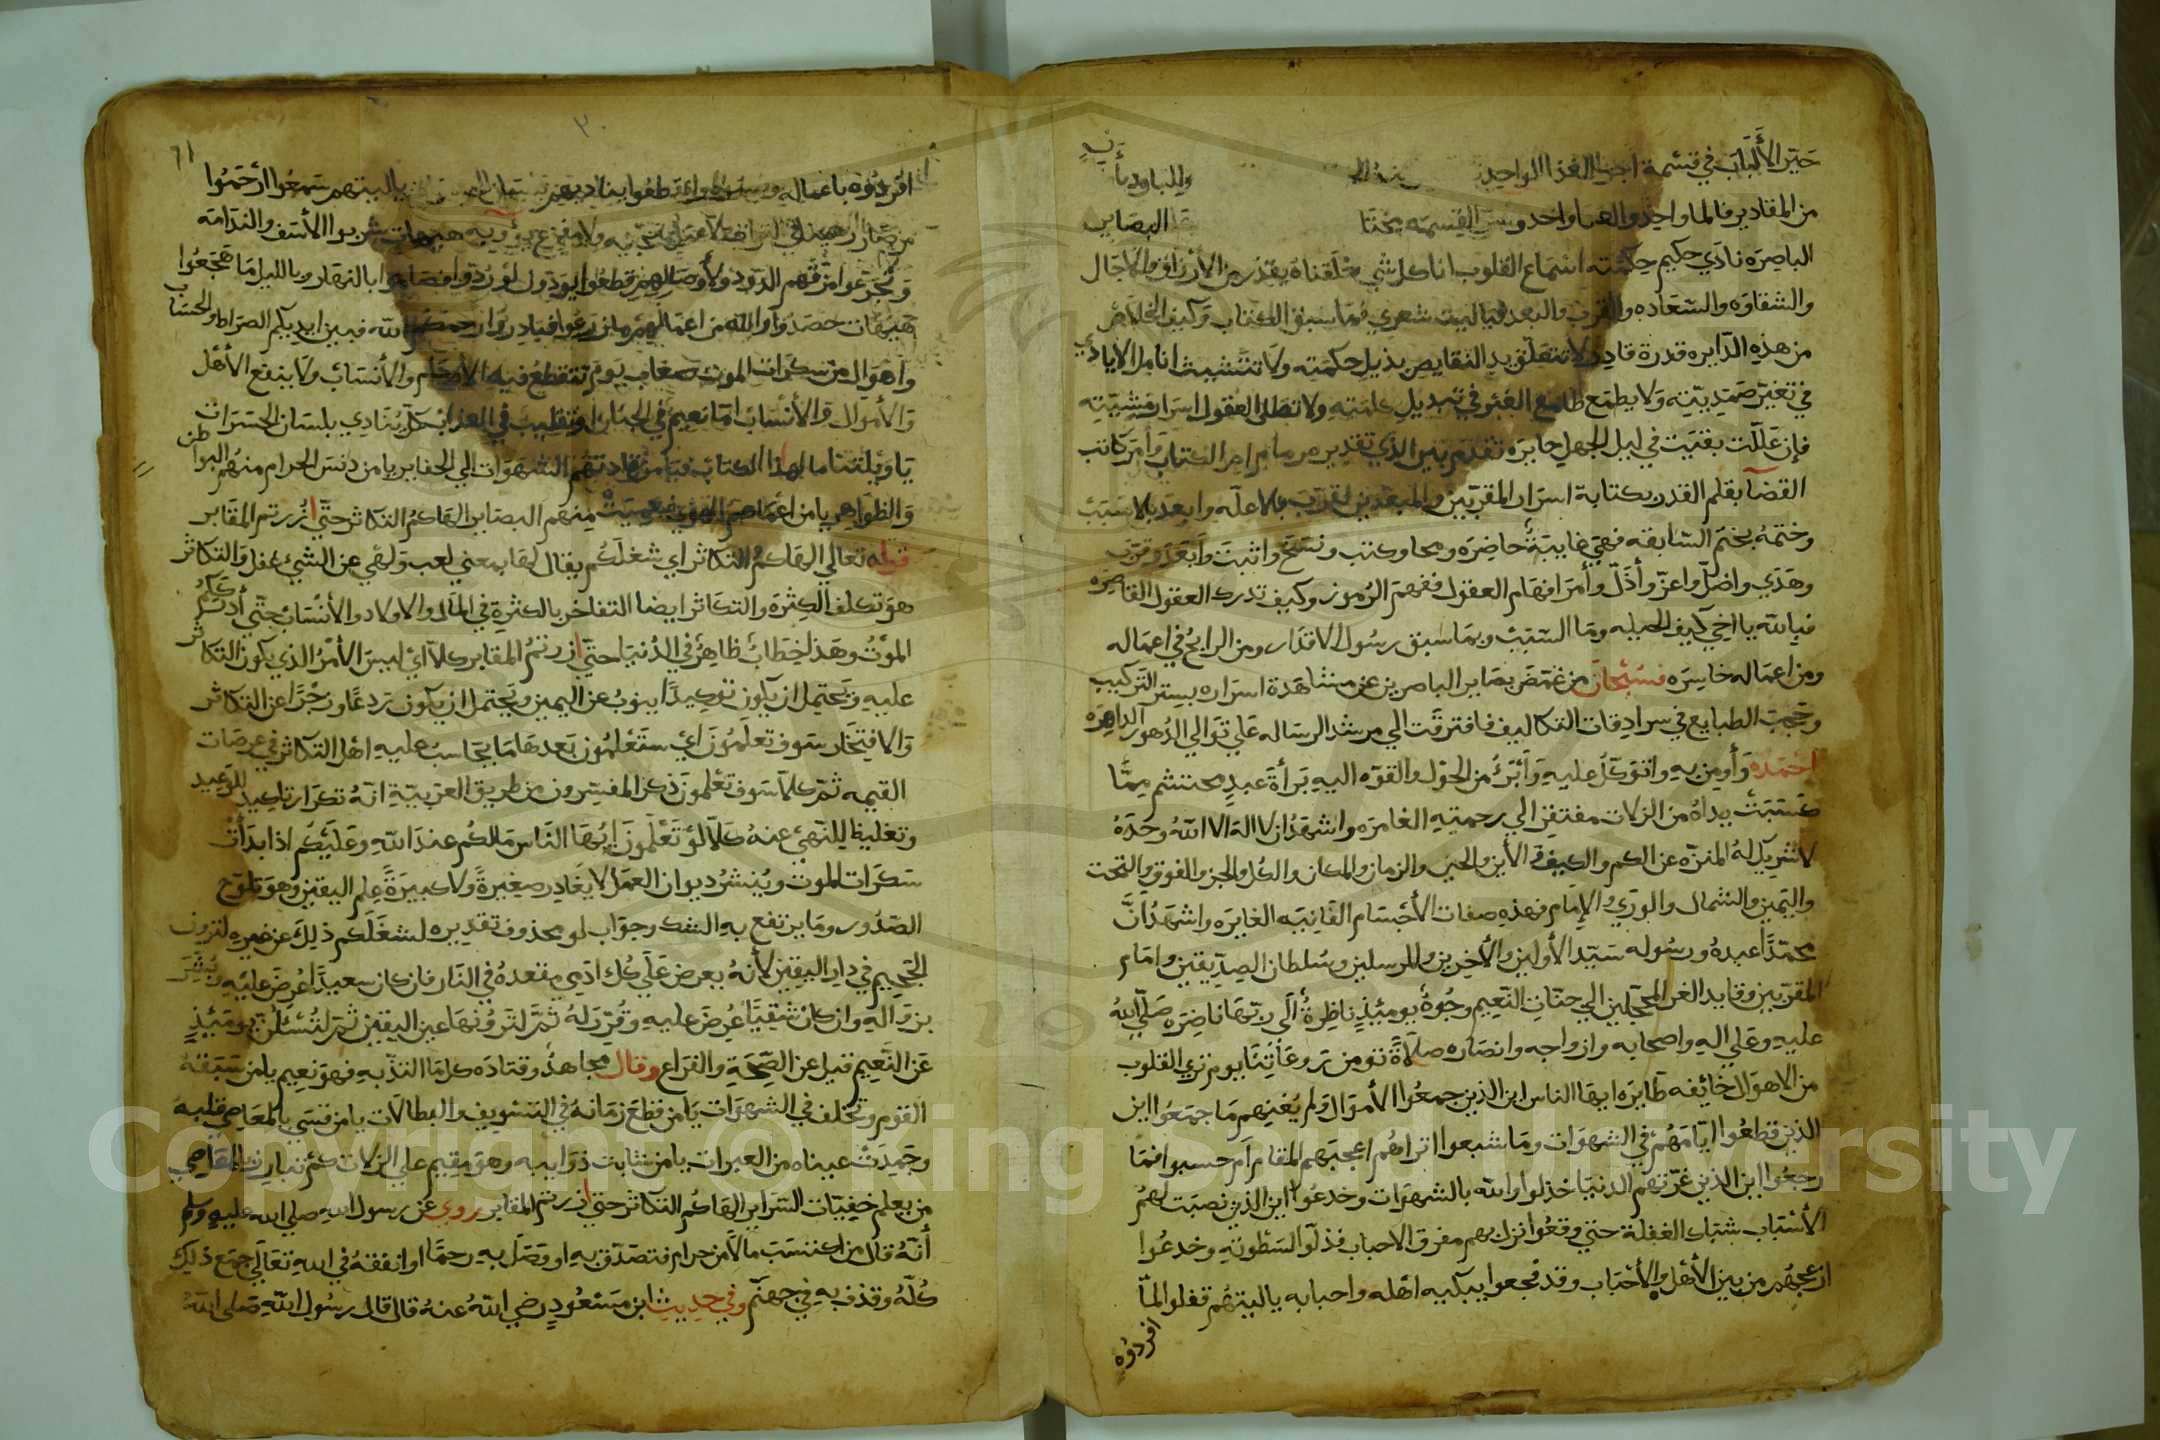 حير الألباب في قسمة اجزا الغذا الواحد وللباودنا
من المقادير فالما واحد والهوا واحد وسر القسمه البصاير
الباصره نادي حكيم حكمته اسماع القلوب انا كل شي خلقناه بقدر من الأرزاق والآجال
والشقاوه والسعاده والقرب والبعد فياليت شعري بما سبق الكتاب وكيف الخلاص
من هذه الدايره قدرة قادر لا تتعلق يد النقايص بذيل حكمته ولا تتشبث انامل الايادي
في تغير صمديته ولا يطمع طامع الغير في تبديل كلمته ولا تطلع العقول اسرار مشيته
فإن عللت بقيت في ليل الجهل حايره تقدم بين الذي تقديره امر الكتاب وأمر كاتب
القضآ بقلم القدر بكتابة اسرار المقربين والمبعدين فقرب بلا عله وابعد بلا سبب
وختمه بختم السابقه فهي غايبة حاضره ومحا وكتب ونسخ واثبت وأبعد وقرب
وهدي واضل واعز وأذل وأمر افهام العقول ففهم الرموز وكيف تدرك العقول القاصره
فبالله يا اخي كيف الحيله وما السبب وبما سبق رسول الاقدار ومن الرابح في اعماله
ومن اعماله خاسره فسبحان من غمض بصاير الباصرين عن مشاهدة اسراره بستر التركيب
وحجب الطبايع في سرادقات التكاليف فافترقت الي مرشد الرساله علي توالي الدهور الداهره
احمده وأومن به واتوكل عليه وأبرئ من الحول والقوه اليه برأة عبد محتشم مما
كسبت يداه من الزلات مفتقر الي رحمته الغامره واشهد ان لا اله الا الله وحده
لا شريك له المنزه عن الكم والكيف و الأين والحين والزمان والمكان والكل والجز والفوق والتحت
واليمين والشمال والوري والإمام فهذه صفات الأجسام الفانيه الغابره واشهد أن
محمدًا عبده ورسوله سيد الأولين والأخرين والمرسلين وسلطان الصديقين وامام
المقربين وقايد الغر المحجلين الي جنات النعيم وجوه يوميذ ناظرة الي ربها ناضره صلي الله
عليه وعلي اله واصحابه وازواجه وانصاره صلاة تومن روعاتنا يوم تري القلوب
من الاهوال خائفه طايره ايها الناس اين الذين جمعوا الأموال ولم يغنهم ما جمعوا اين
الذين قطعوا ايامهم في الشهوات وما شبعوا اتراهم اعجبهم المقام ام حسبوا فما
رجعوا اين الذين غرتهم الدنيا خذلوا والله بالشهوات وخدعوا اين الذين نصبت لهم
الأسباب شباك الغفلة حتي وقعوا انزل بهم مفرق الاحباب فذلوا لسطوته وخدعوا
ازعجهم من بين الأهل والأحباب وقد فجعوا يبكيه اهله واحبابه ياليتهم قفلوا لما
افردوه
٣٠
٦١
افردوه باعماله ياليتهم سمعوا ارحموا
هيهات شربوا الأسف والندامه
وتجرعوا مزقهم الدود ولأوصالهم قطعوا يودون لو ردوا فصاموا بالنهار وبالليل ما هجعوا
هيهات حصدوا والله من اعمالهم ما زرعوا فبادروا رحمكم الله فبين ايديكم الصراط والحساب
واهوال من سكرات الموت صعاب يوم تتقطع فيه الأرحام والأنساب ولا ينفع الأهل
والأموال والأنساب اما نعيم في الجنان او تقليب في العذاب كل ينادي بلسان الحسرات
يا ويلتنا ما لهذا الكتاب فيا من قادتهم الشهوات الي الحفاير يا من دنس الحرام منهم البواطن
والظواهر يا من اعماهم الهوي فعميت منهم البصاير الهاكم التكاثر حتي زرتم المقابر
قوله تعالي الهاكم التكاثر اي شغلكم يقال لها بمعني لعب ولهي عن الشيء غفل والتكاثر
هو تكلف الكثره والتكاثر ايضا التفاخر بالكثرة في المال والاولاد والأنساب حتي أدرككم
الموت وهذا خطاب ظاهر في الدنيا حتي زرتم المقابر كلا اي ليس الأمر الذي يكون التكاثر
عليه ويحتمل ان يكون توكيدًا ينوب عن اليمين ويحتمل ان يكون ردعًا وزجرًا عن التكاثر
والافتخار سوف تعلمون أي ستعلمون بعدها ما يحاسب عليه اهل التكاثر في عرصات
القيمه ثم كلا سوف تعلمون ذكر المفسرون من طريق العربية انه تكرار تاكيد للوعيد
وتغليظ للنهي عنه كلا لو تعلمون ايها الناس مالكم عند الله وعليكم اذا بدأت
سكرات الموت وينشر ديوان العمل لا يغادر صغيرة ولا كبيرة علم اليقين وهو ثلوج
الصدور وما يرتفع به الشك وجواب لو محذوف تقديره لشغلكم ذلك عن غيره لترون
الجحيم في دار اليقين لأنه يعرض علي كل ادمي مقعده في النار فان كان سعيدًا عرض عليه وبشر
بزواله وان كان شقيًا عرض عليه وقرر له ثم لترونها عين اليقين ثم لتسئلن يوميذ
عن النعيم قيل عن الصحة والفراغ وقال مجاهد وقتاده كل ما التذ به فهو نعيم يا من سبقه
القوم وتخلف في الشهوات يا من قطع زمانه في التسويف والبطالات يا من قسي بالمعاصي قلبه
وجمدت عيناه من العبرات يا من شابت ذوايبه وهو مقيم علي الزلات كم تبارز بالمعاصي
من يعلم خفيات السراير الهاكم التكاثر حتي زرتم المقابر روي عن رسول الله صلي الله عليه وسلم
أنه قال من اكتسب مالا من حرام فتصدق به او وصل به رحمًا او انفقه في الله تعالي جمع ذلك
كله وقذف به في جهنم وفي حديث ابن مسعود رضي الله عنه قال قال رسول الله صلي الله
Copyright © King Saud University